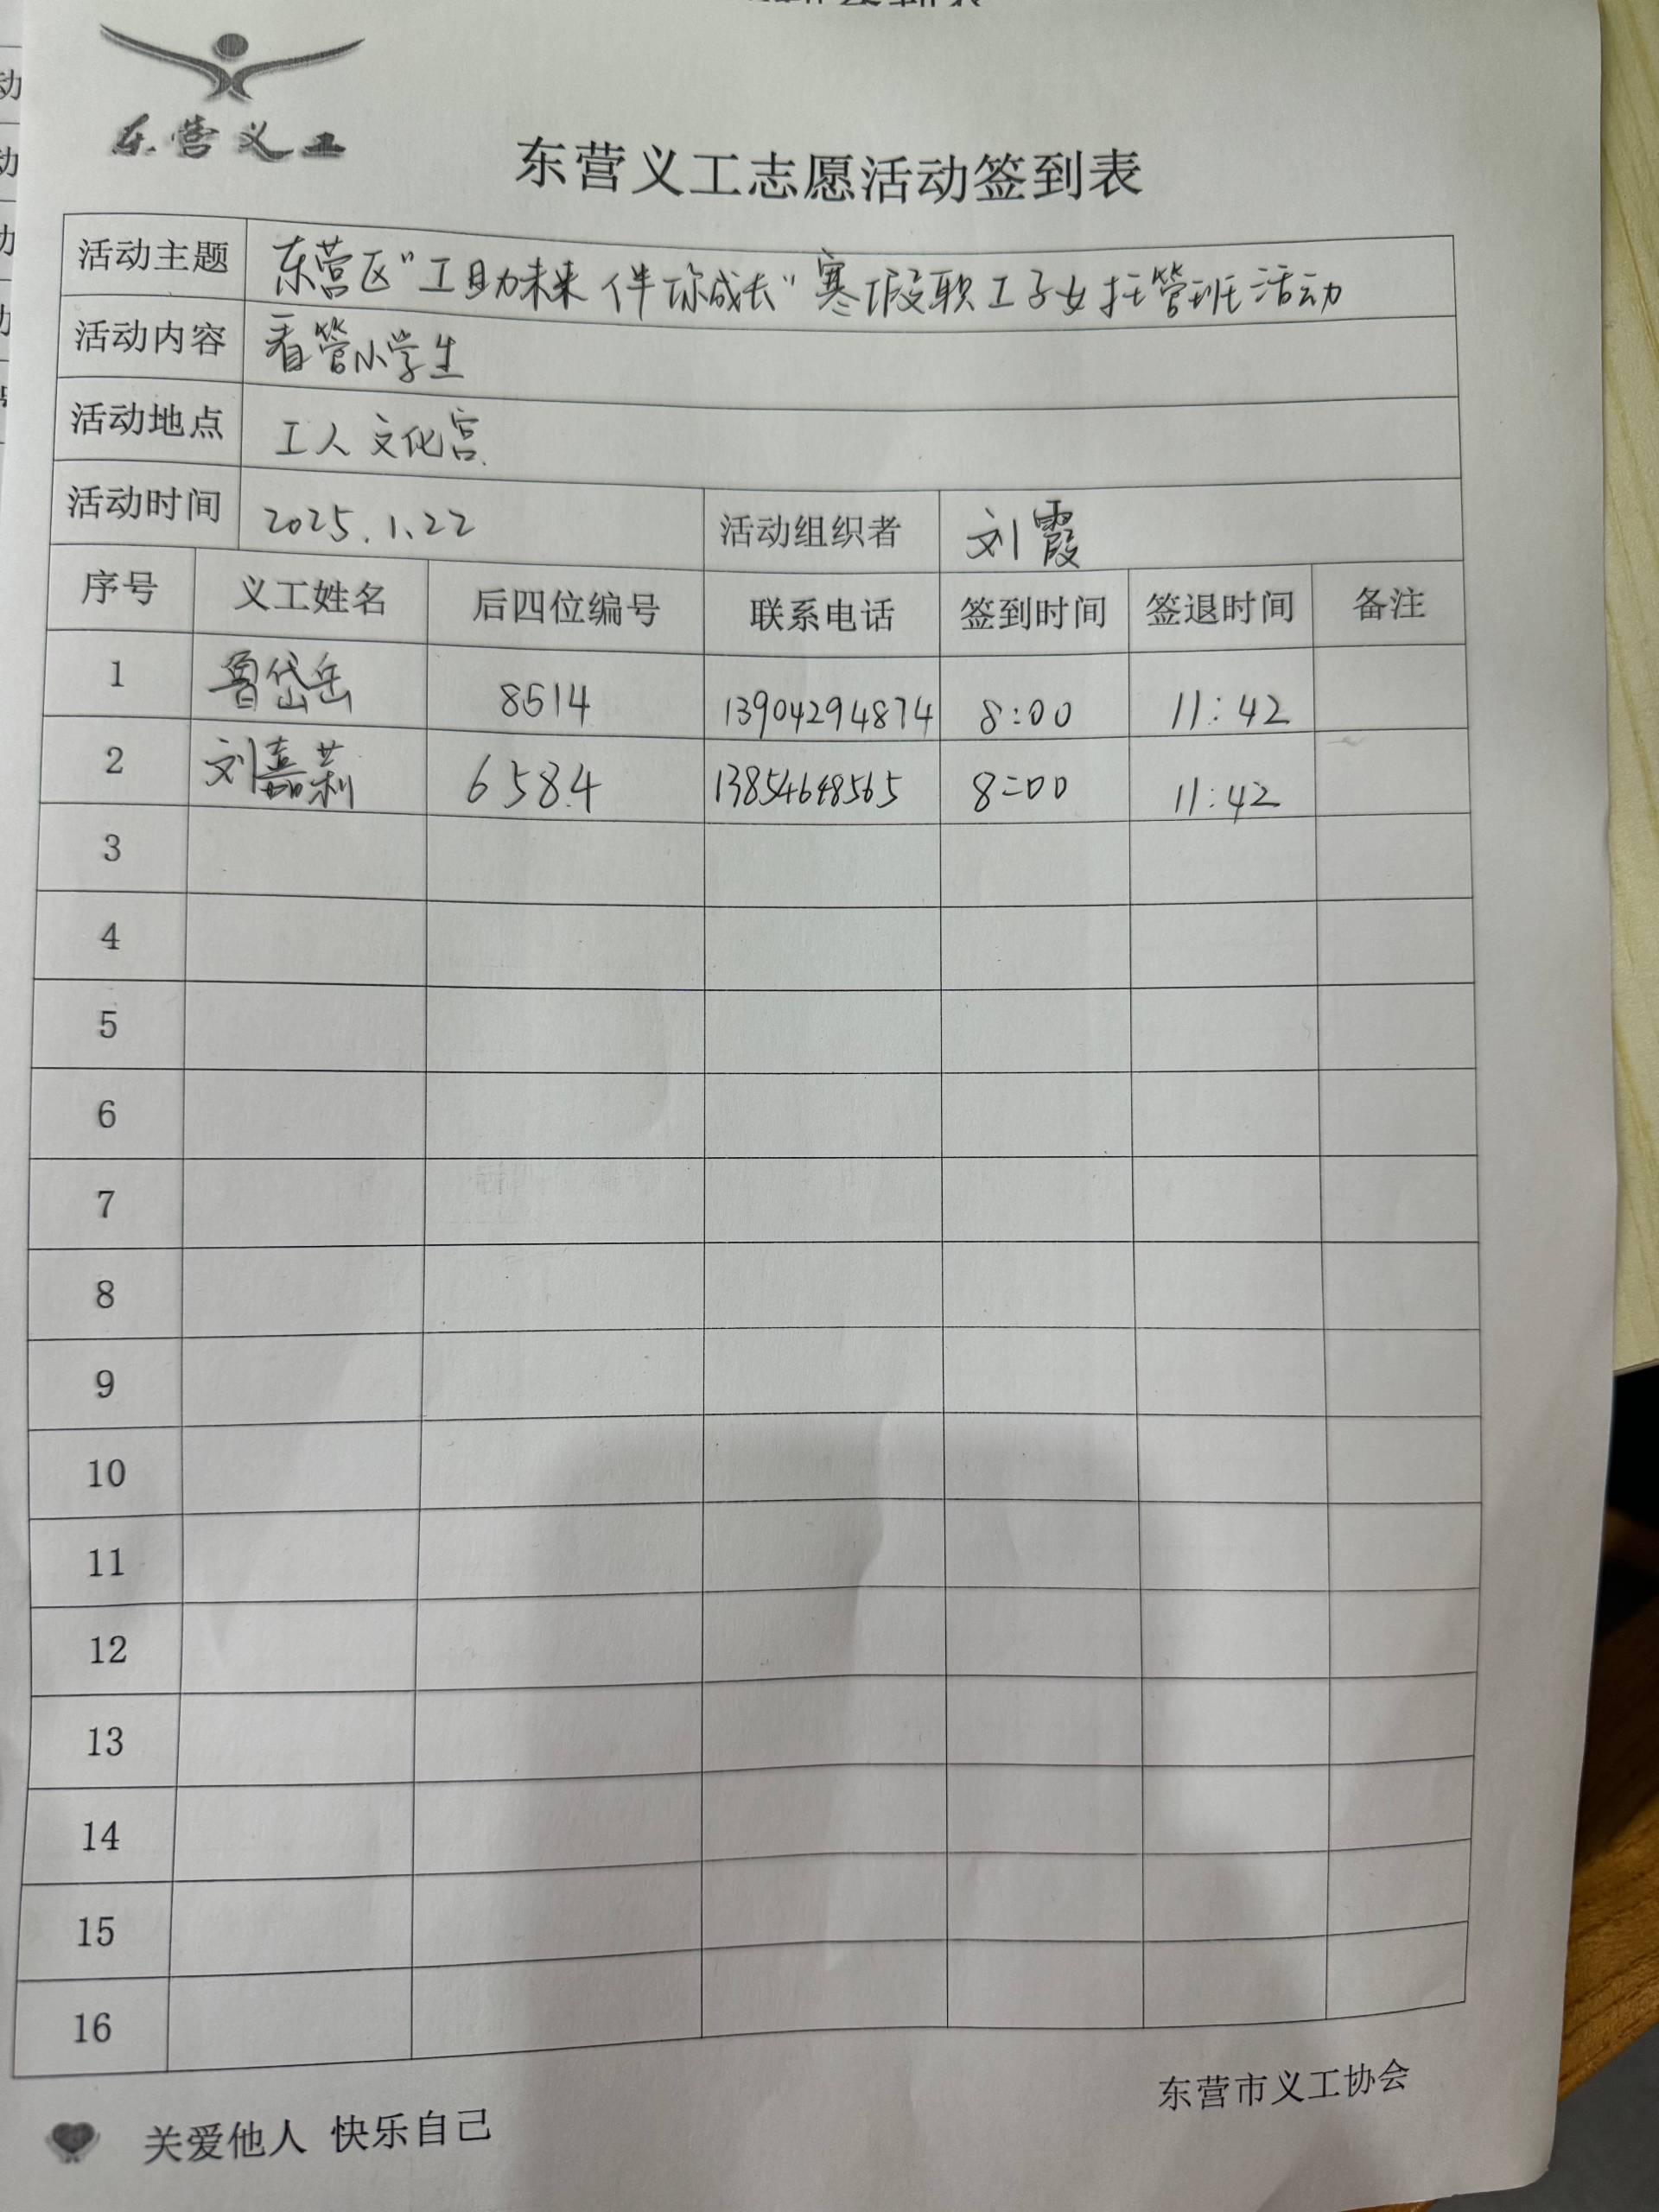 东营义工
东营义工志愿活动签到表
活动主题 东营区“工助未来 伴你成长”寒假职工子女托管班活动
活动内容 看管小学生
活动地点 工人文化宫
活动时间 2025.1.22 活动组织者 刘霞
序号 义工姓名 后四位编号 联系电话 签到时间 签退时间 备注
1 鲁岱岳 8514 13904294874 8:00 11:42
2 刘嘉莉 6584 13854648565 8:00 11:42
3
4
5
6
7
8
9
10
11
12
13
14
15
16
东营市义工协会
关爱他人 快乐自己